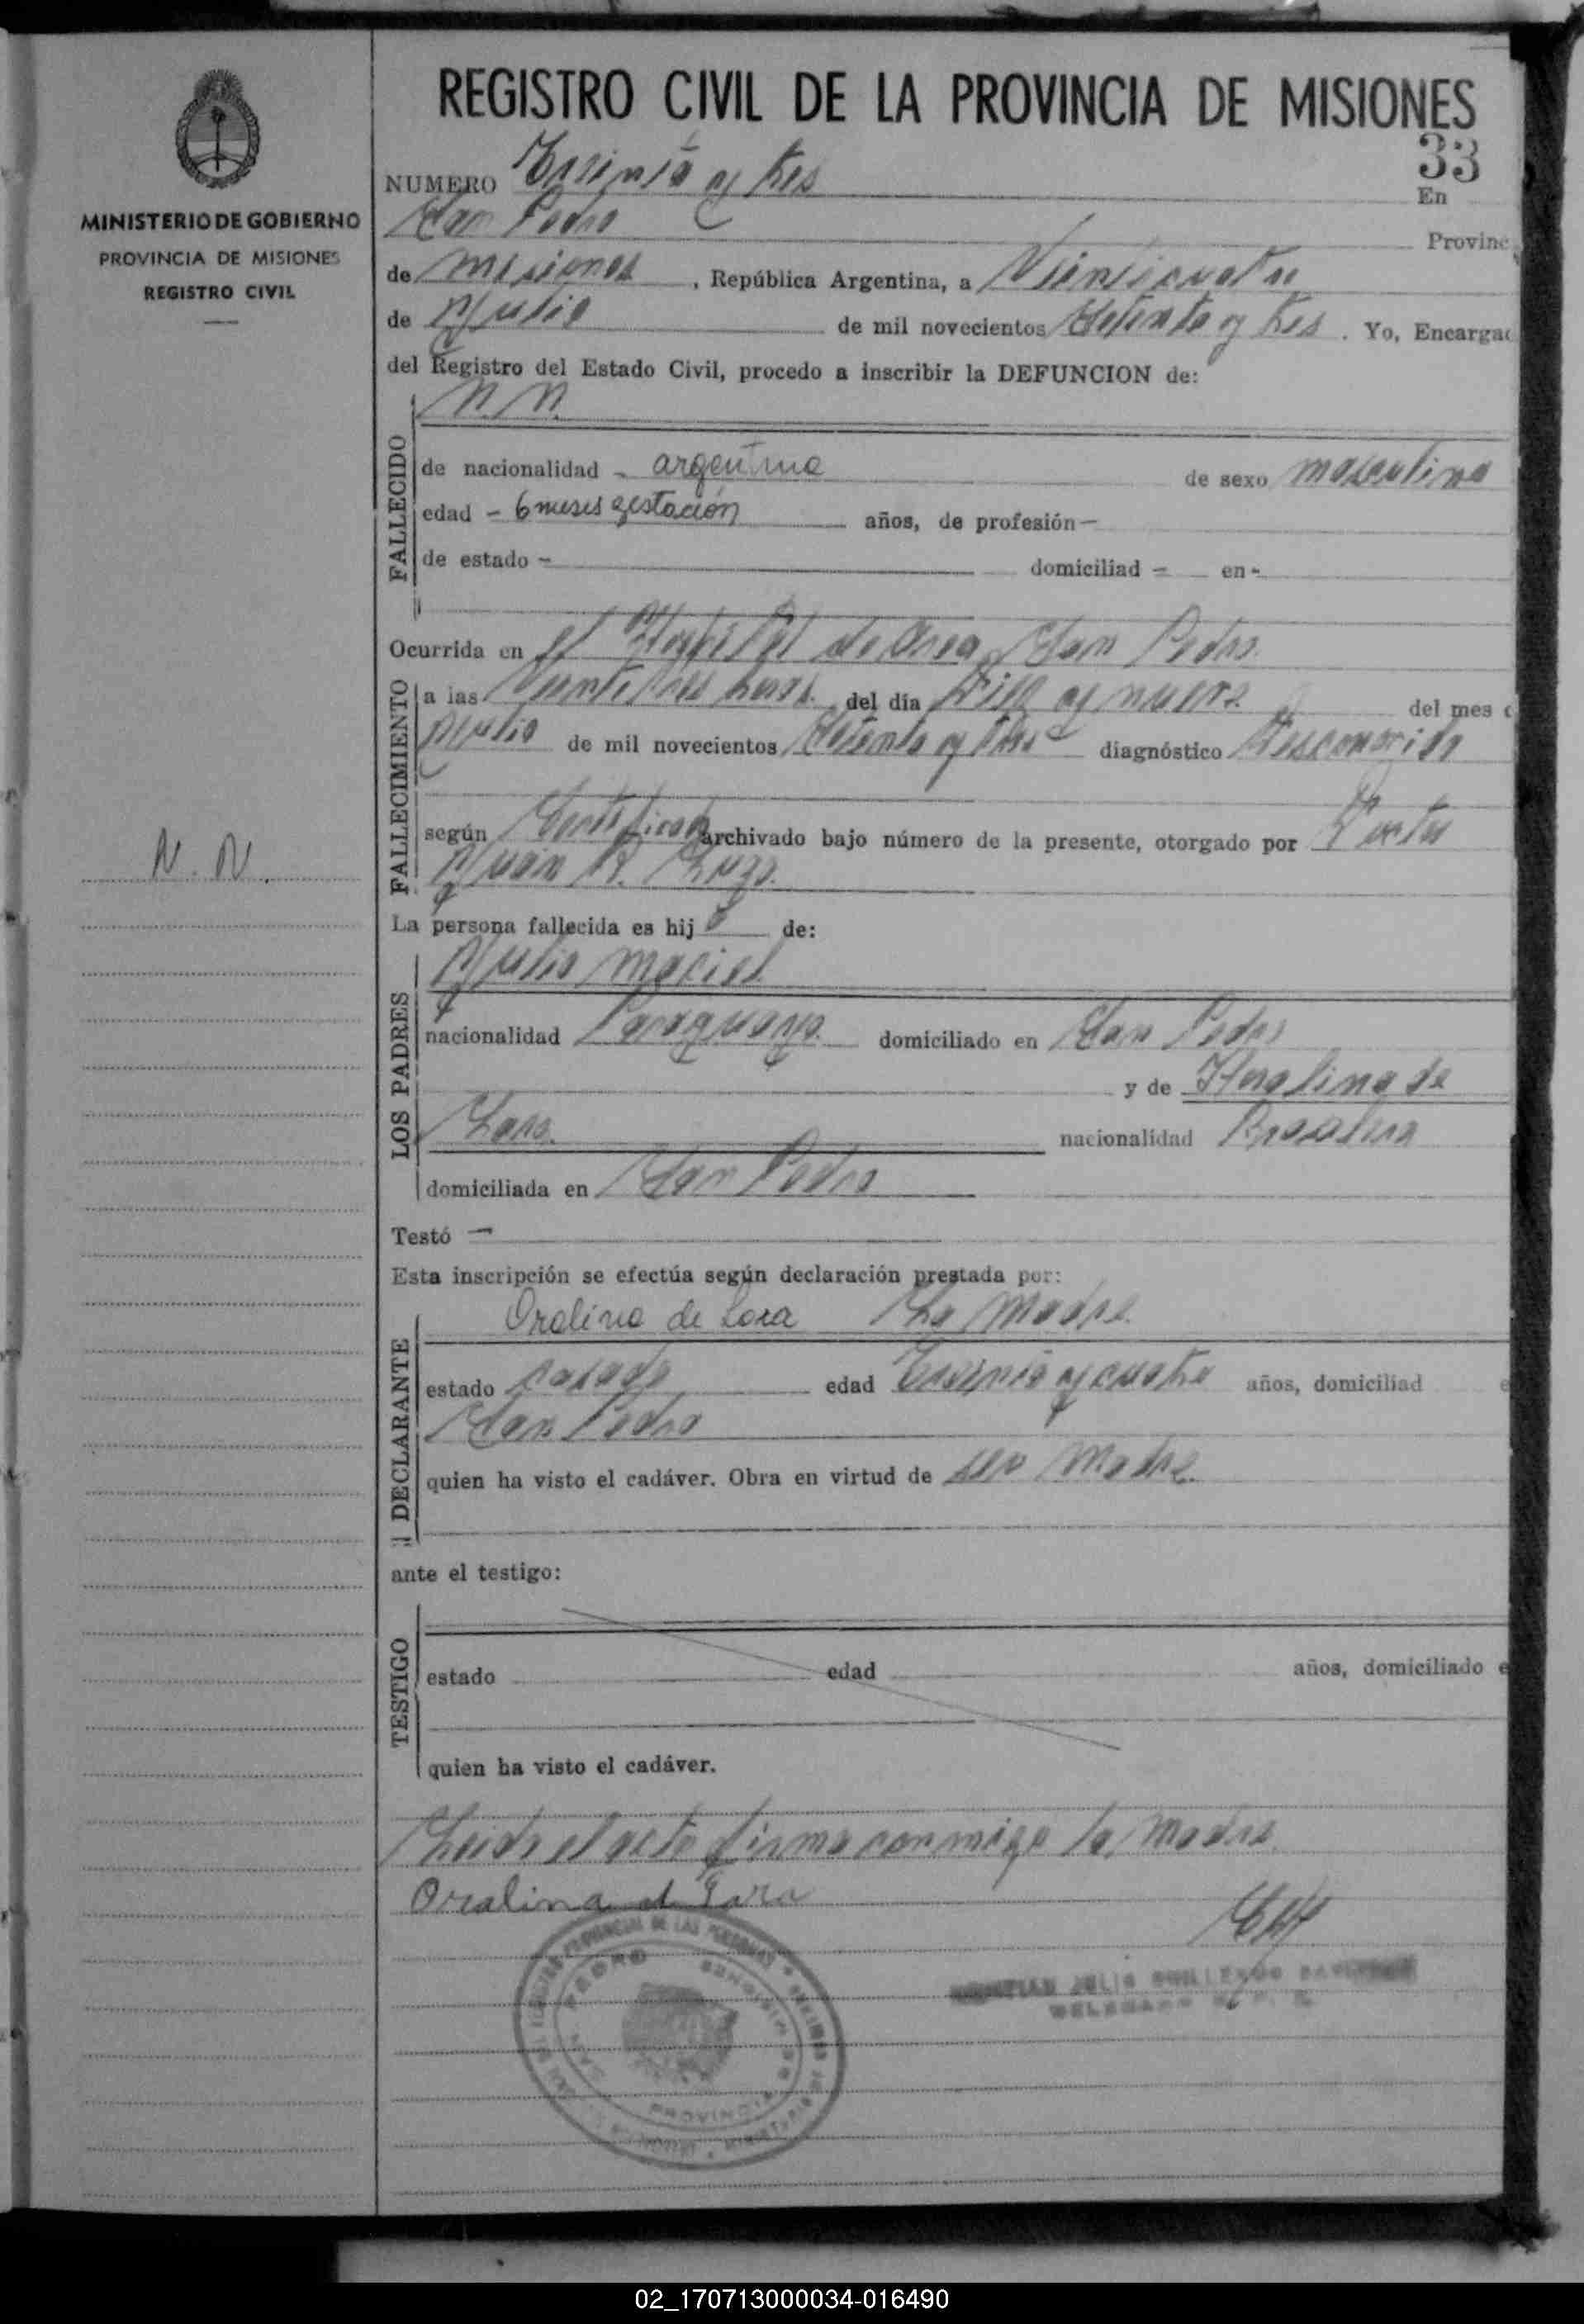 MINISTERIO DE GOBIERNO
PROVINCIA DE MISIONES
REGISTRO CIVIL
N. N.
REGISTRO CIVIL DE LA PROVINCIA DE MISIONES
33
NUMERO Treinta y tres En
San Pedro Provinc
de Misiones, República Argentina, a Veinticuatro
de Julio de mil novecientos Setenta y tres. Yo, Encargad
del Registro del Estado Civil, procedo a inscribir la DEFUNCION de:
FALLECIDO
N. N.
de nacionalidad - argentina de sexo masculino
edad - 6 meses gestación años, de profesión -
de estado - domiciliad - en -
Ocurrida en el Hospital de Area San Pedro.
FALLECIMIENTO
a las horas. del día diez y nueve del mes d
Julio de mil novecientos Setenta y tres diagnóstico Desconocido
según Certificado archivado bajo número de la presente, otorgado por Doctor
Juan R. Lugo.
La persona fallecida es hijo de:
LOS PADRES
Julio Maciel
nacionalidad Paraguaya. domiciliado en San Pedro
y de de
Lara. nacionalidad Brasilera
domiciliada en San Pedro
Testó -
Esta inscripción se efectúa según declaración prestada por:
DECLARANTE
Oralina de Lara La Madre.
estado casada edad Treinta y cuatro años, domiciliad e
San Pedro
quien ha visto el cadáver. Obra en virtud de ser Madre.
ante el testigo:
TESTIGO
estado edad años, domiciliado e
quien ha visto el cadáver.
Leida el acta firma conmigo la Madre.
Oralina d Lara
PEDRO
SAN
PROVINCIA
02_170713000034-016490